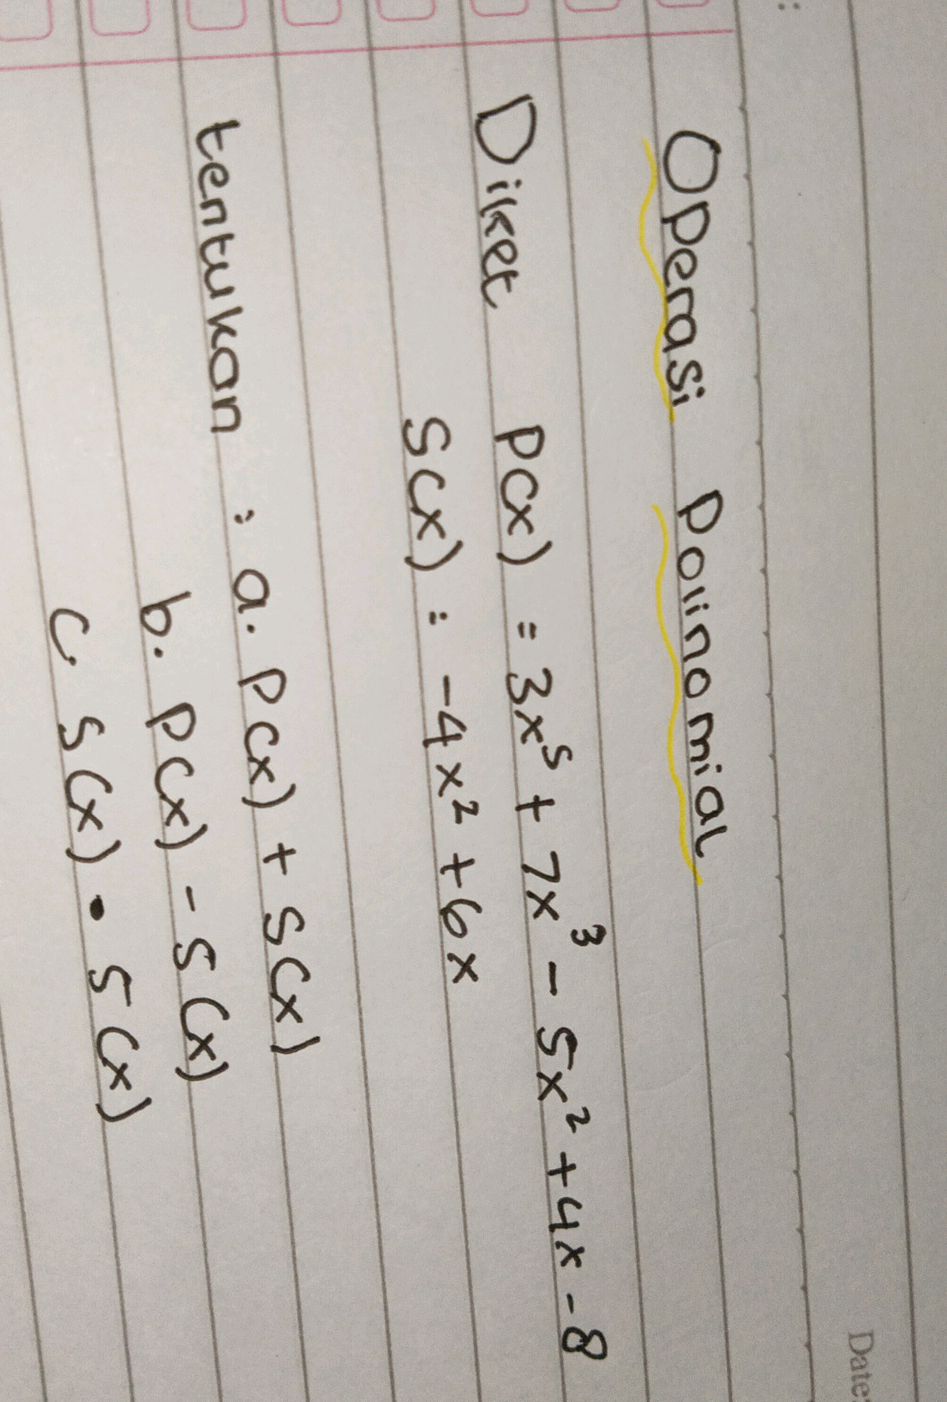 Date:
Operasi Polinomial
Diket P(x) = 3x⁵ + 7x³ - 5x² + 4x - 8
S(x) : -4x² + 6x
tentukan : a. P(x) + S(x)
b. P(x) - S(x)
c. S(x) • S(x)